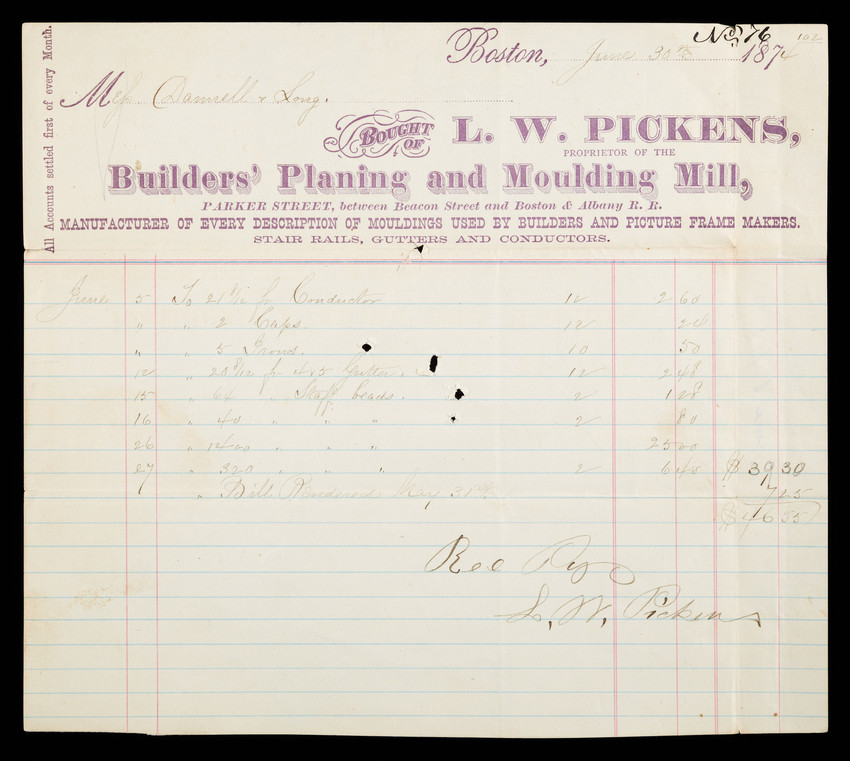 No 76
102
Boston, June 30th 1874
Mess Damrell & Long.
BOUGHT OF L. W. PICKENS,
PROPRIETOR OF THE
Builders' Planing and Moulding Mill,
PARKER STREET, between Beacon Street and Boston & Albany R. R.
MANUFACTURER OF EVERY DESCRIPTION OF MOULDINGS USED BY BUILDERS AND PICTURE FRAME MAKERS.
STAIR RAILS, GUTTERS AND CONDUCTORS.
All Accounts settled first of every Month.
June 5 To 21 8/12 ft Conductor 12 2 60
" " 2 Caps. 12 24
" " 5 Irons. 10 50
12 " 20 8/12 ft 4x5 Gutter 12 2 48
15 " 64 " Staff beads. 2 1 28
16 " 40 " " " 2 80
26 " 1400 " " " 25 00
27 " 320 " " " 2 6 40 $ 39 30
" Bill Rendered May 31st 7 25
$ 46 55
Rec Pay
L. W. Pickens